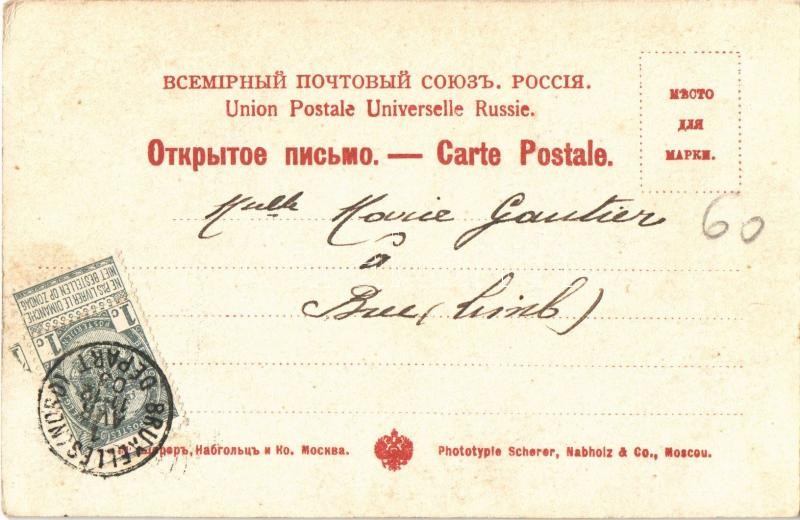 ВСЕМІРНЫЙ ПОЧТОВЫЙ СОЮЗЪ. РОССІЯ.
Union Postale Universelle Russie.
Открытое письмо. — Carte Postale.
МѢСТО
ДЛЯ
МАРКИ.
Mlle Marie Gautier
60
à
Bree (Limb)
NE PAS LIVRER LE DIMANCHE
NIET BESTELLEN OP ZONDAG
1c 1c
BRUXELLES (NORD)
DÉPART
Набгольцъ и Ко. Москва.
Phototypie Scherer, Nabholz & Co., Moscou.